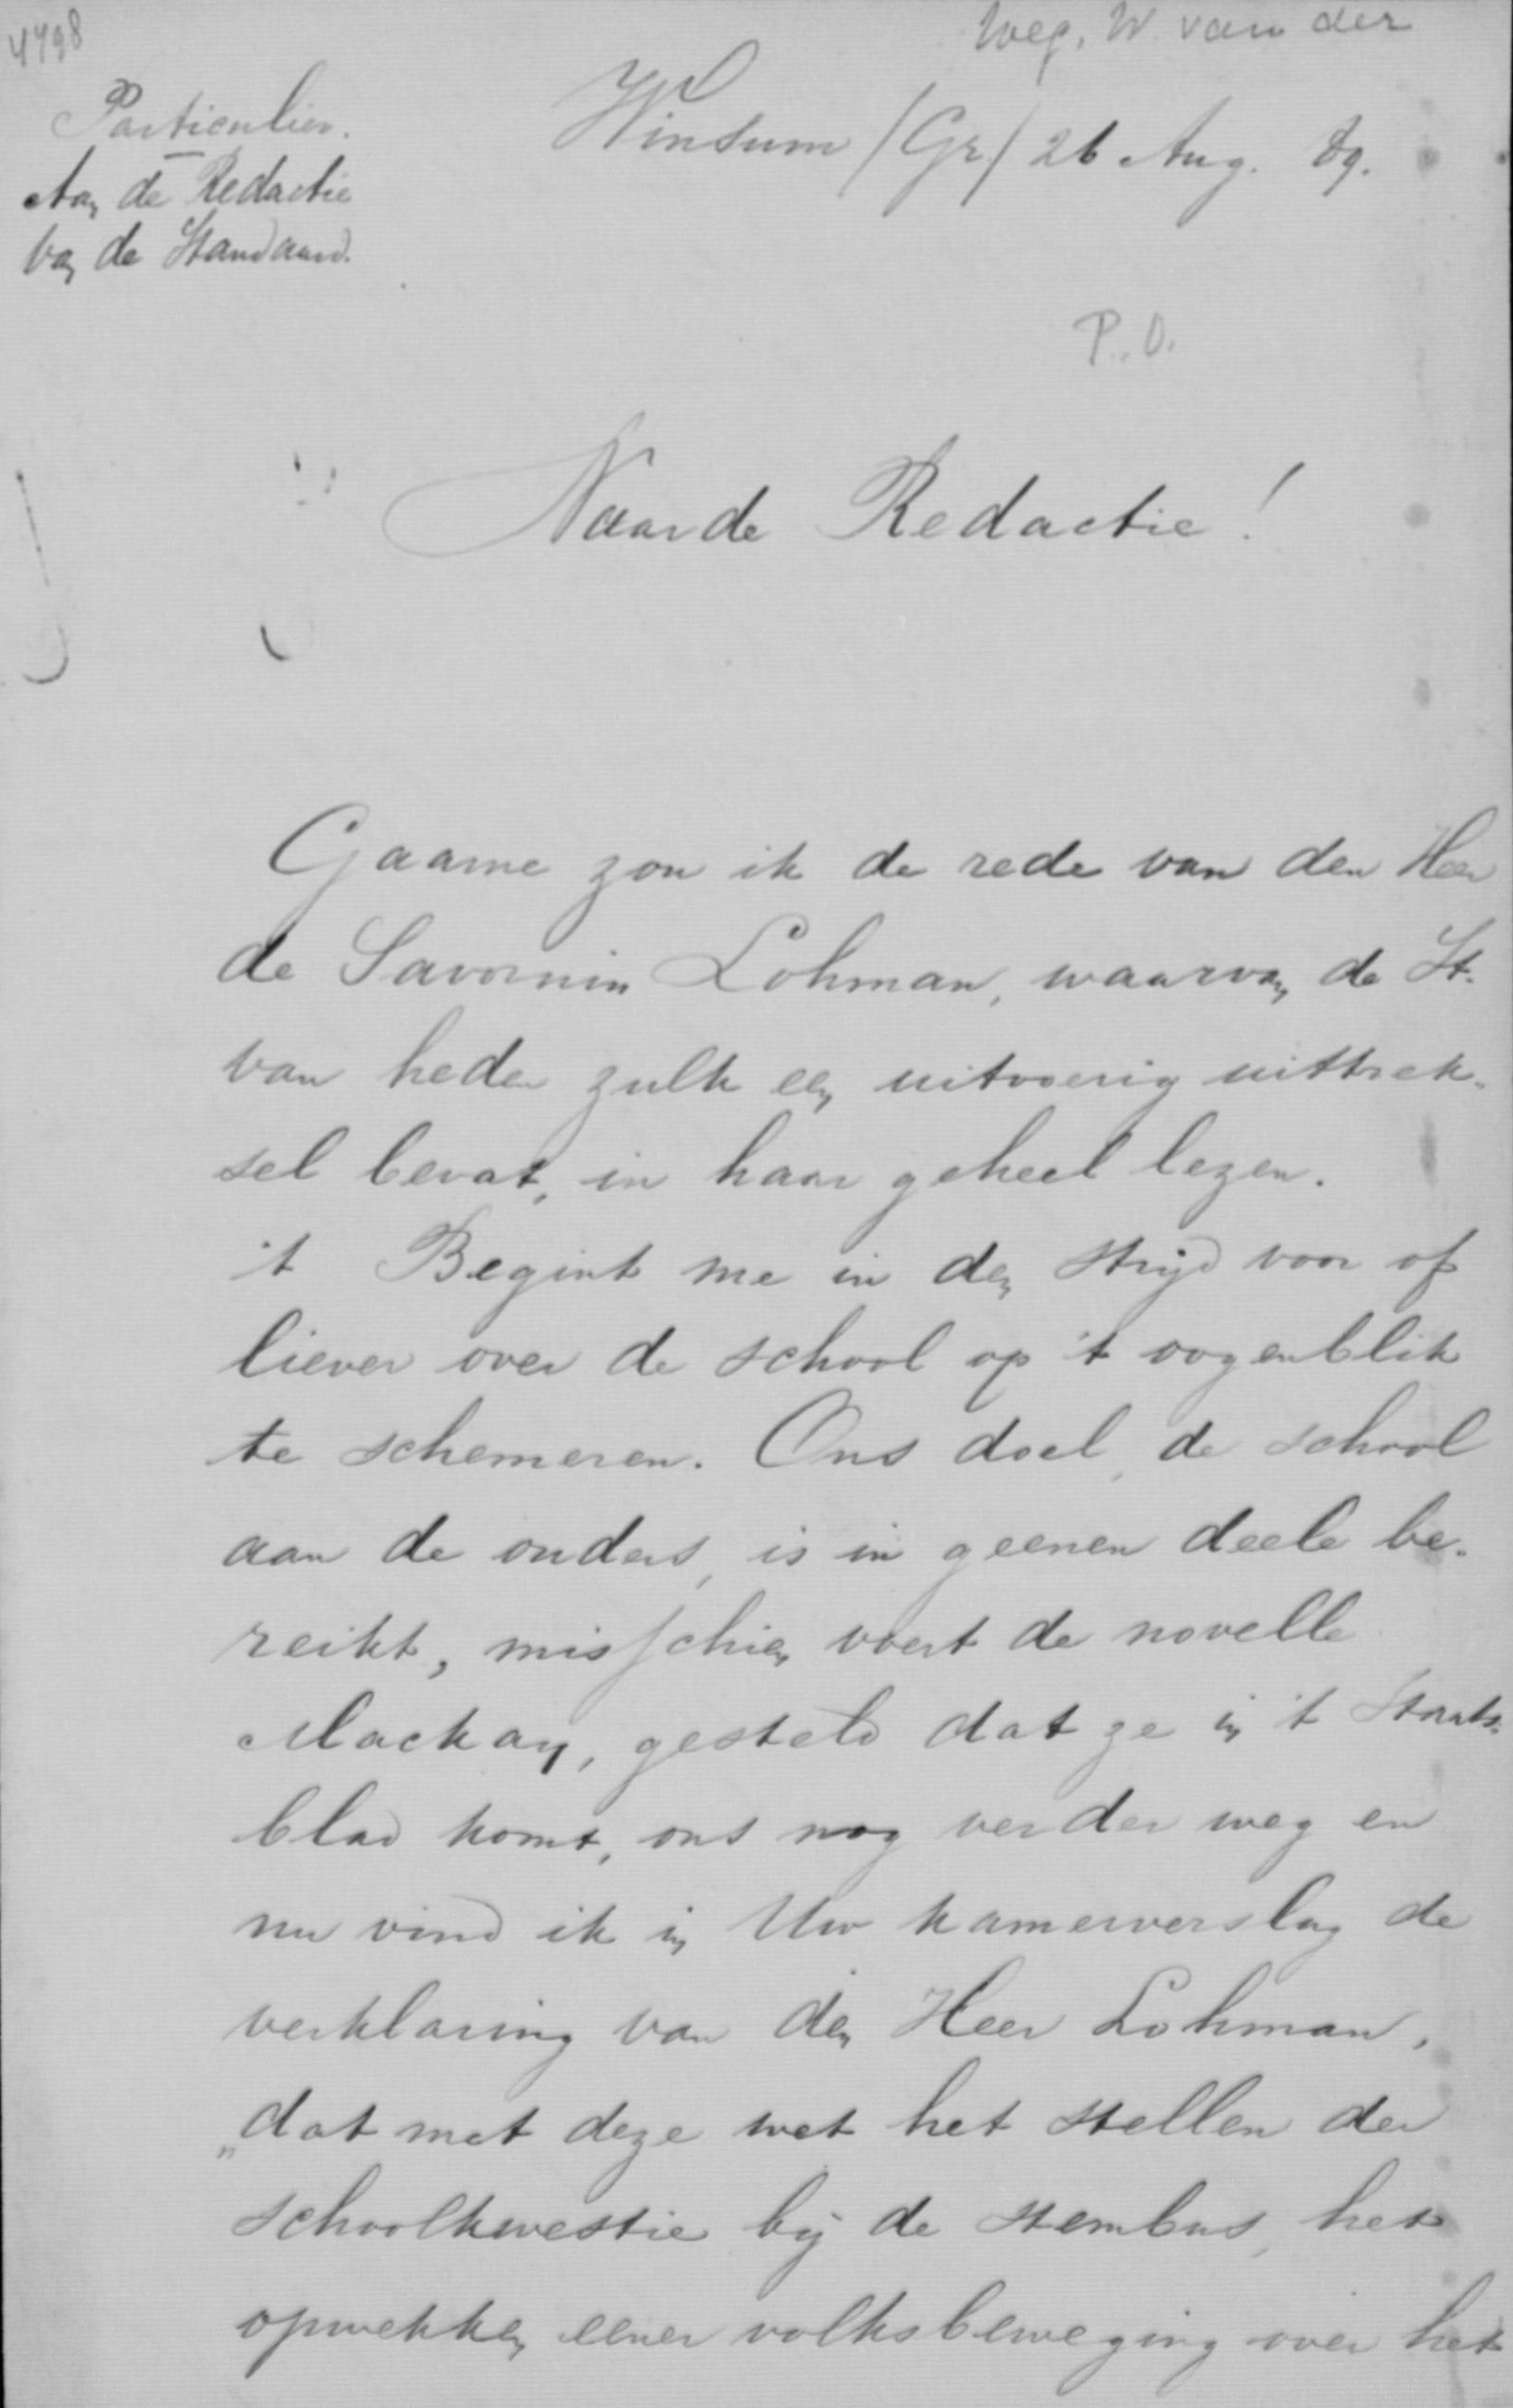 4498
Weg, W. van der
Particulier.
Aan de Redactie
van de Standaard.
Winsum /Gr/ 26 Aug. 89.
P.O.
Waarde Redactie!
Gaarne zou ik de rede van den Heer
de Savornin Lohman, waarvan de St.
van heden zulk een uitvoerig uittrek-
sel bevat, in haar geheel lezen.
't Begint me in den strijd voor of
liever over de school op 't oogenblik
te schemeren. Ons doel, de school
aan de ouders, is in geenen deele be-
reikt, misschien voert de novelle
Mackay, gesteld dat ze in 't Staats-
blad komt, ons nog verder weg en
nu vind ik in Uw kamerverslag de
verklaring van den Heer Lohman,
„dat met deze wet het stellen der
schoolkwestie bij de stembus, het
opwekken eener volksbeweging over het